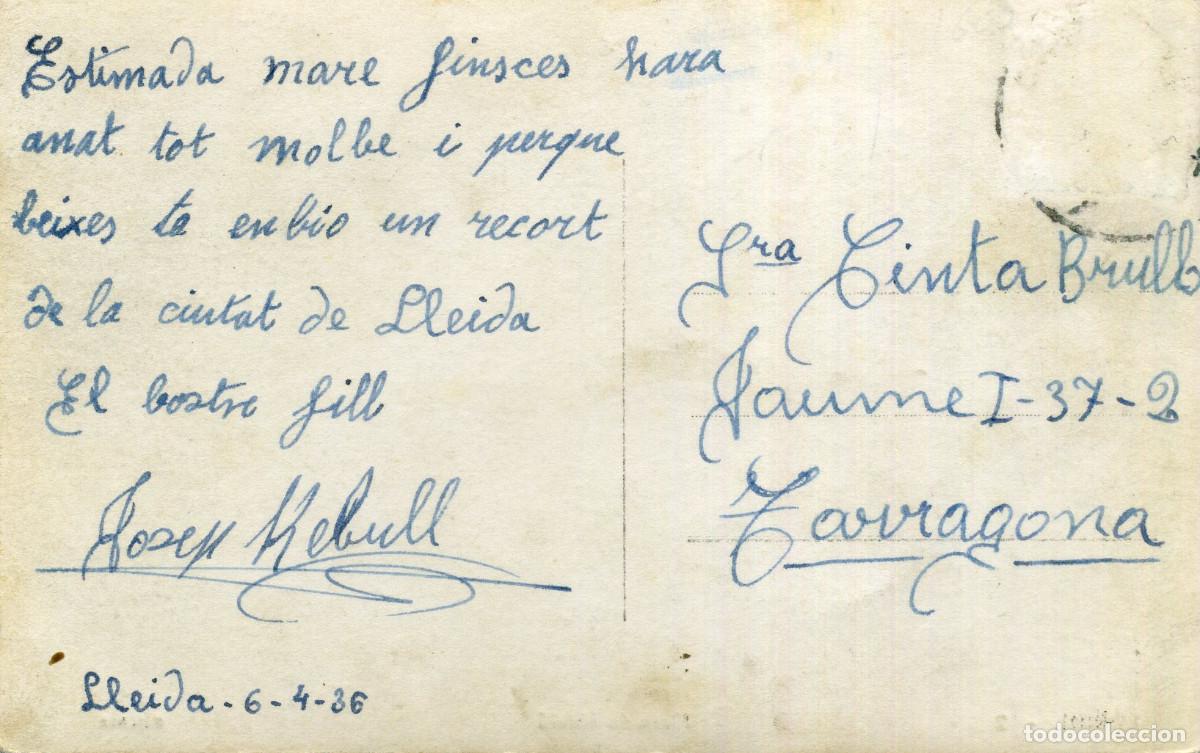 Estimada mare finsces hara
anat tot molbe i perque
beixes te enbio un recort
de la ciutat de Lleida
El bostre fill
Josep Rebull
Lleida - 6-4-36
Sra Cinta Brull
Jaume I-37-2
Tarragona
todocoleccion